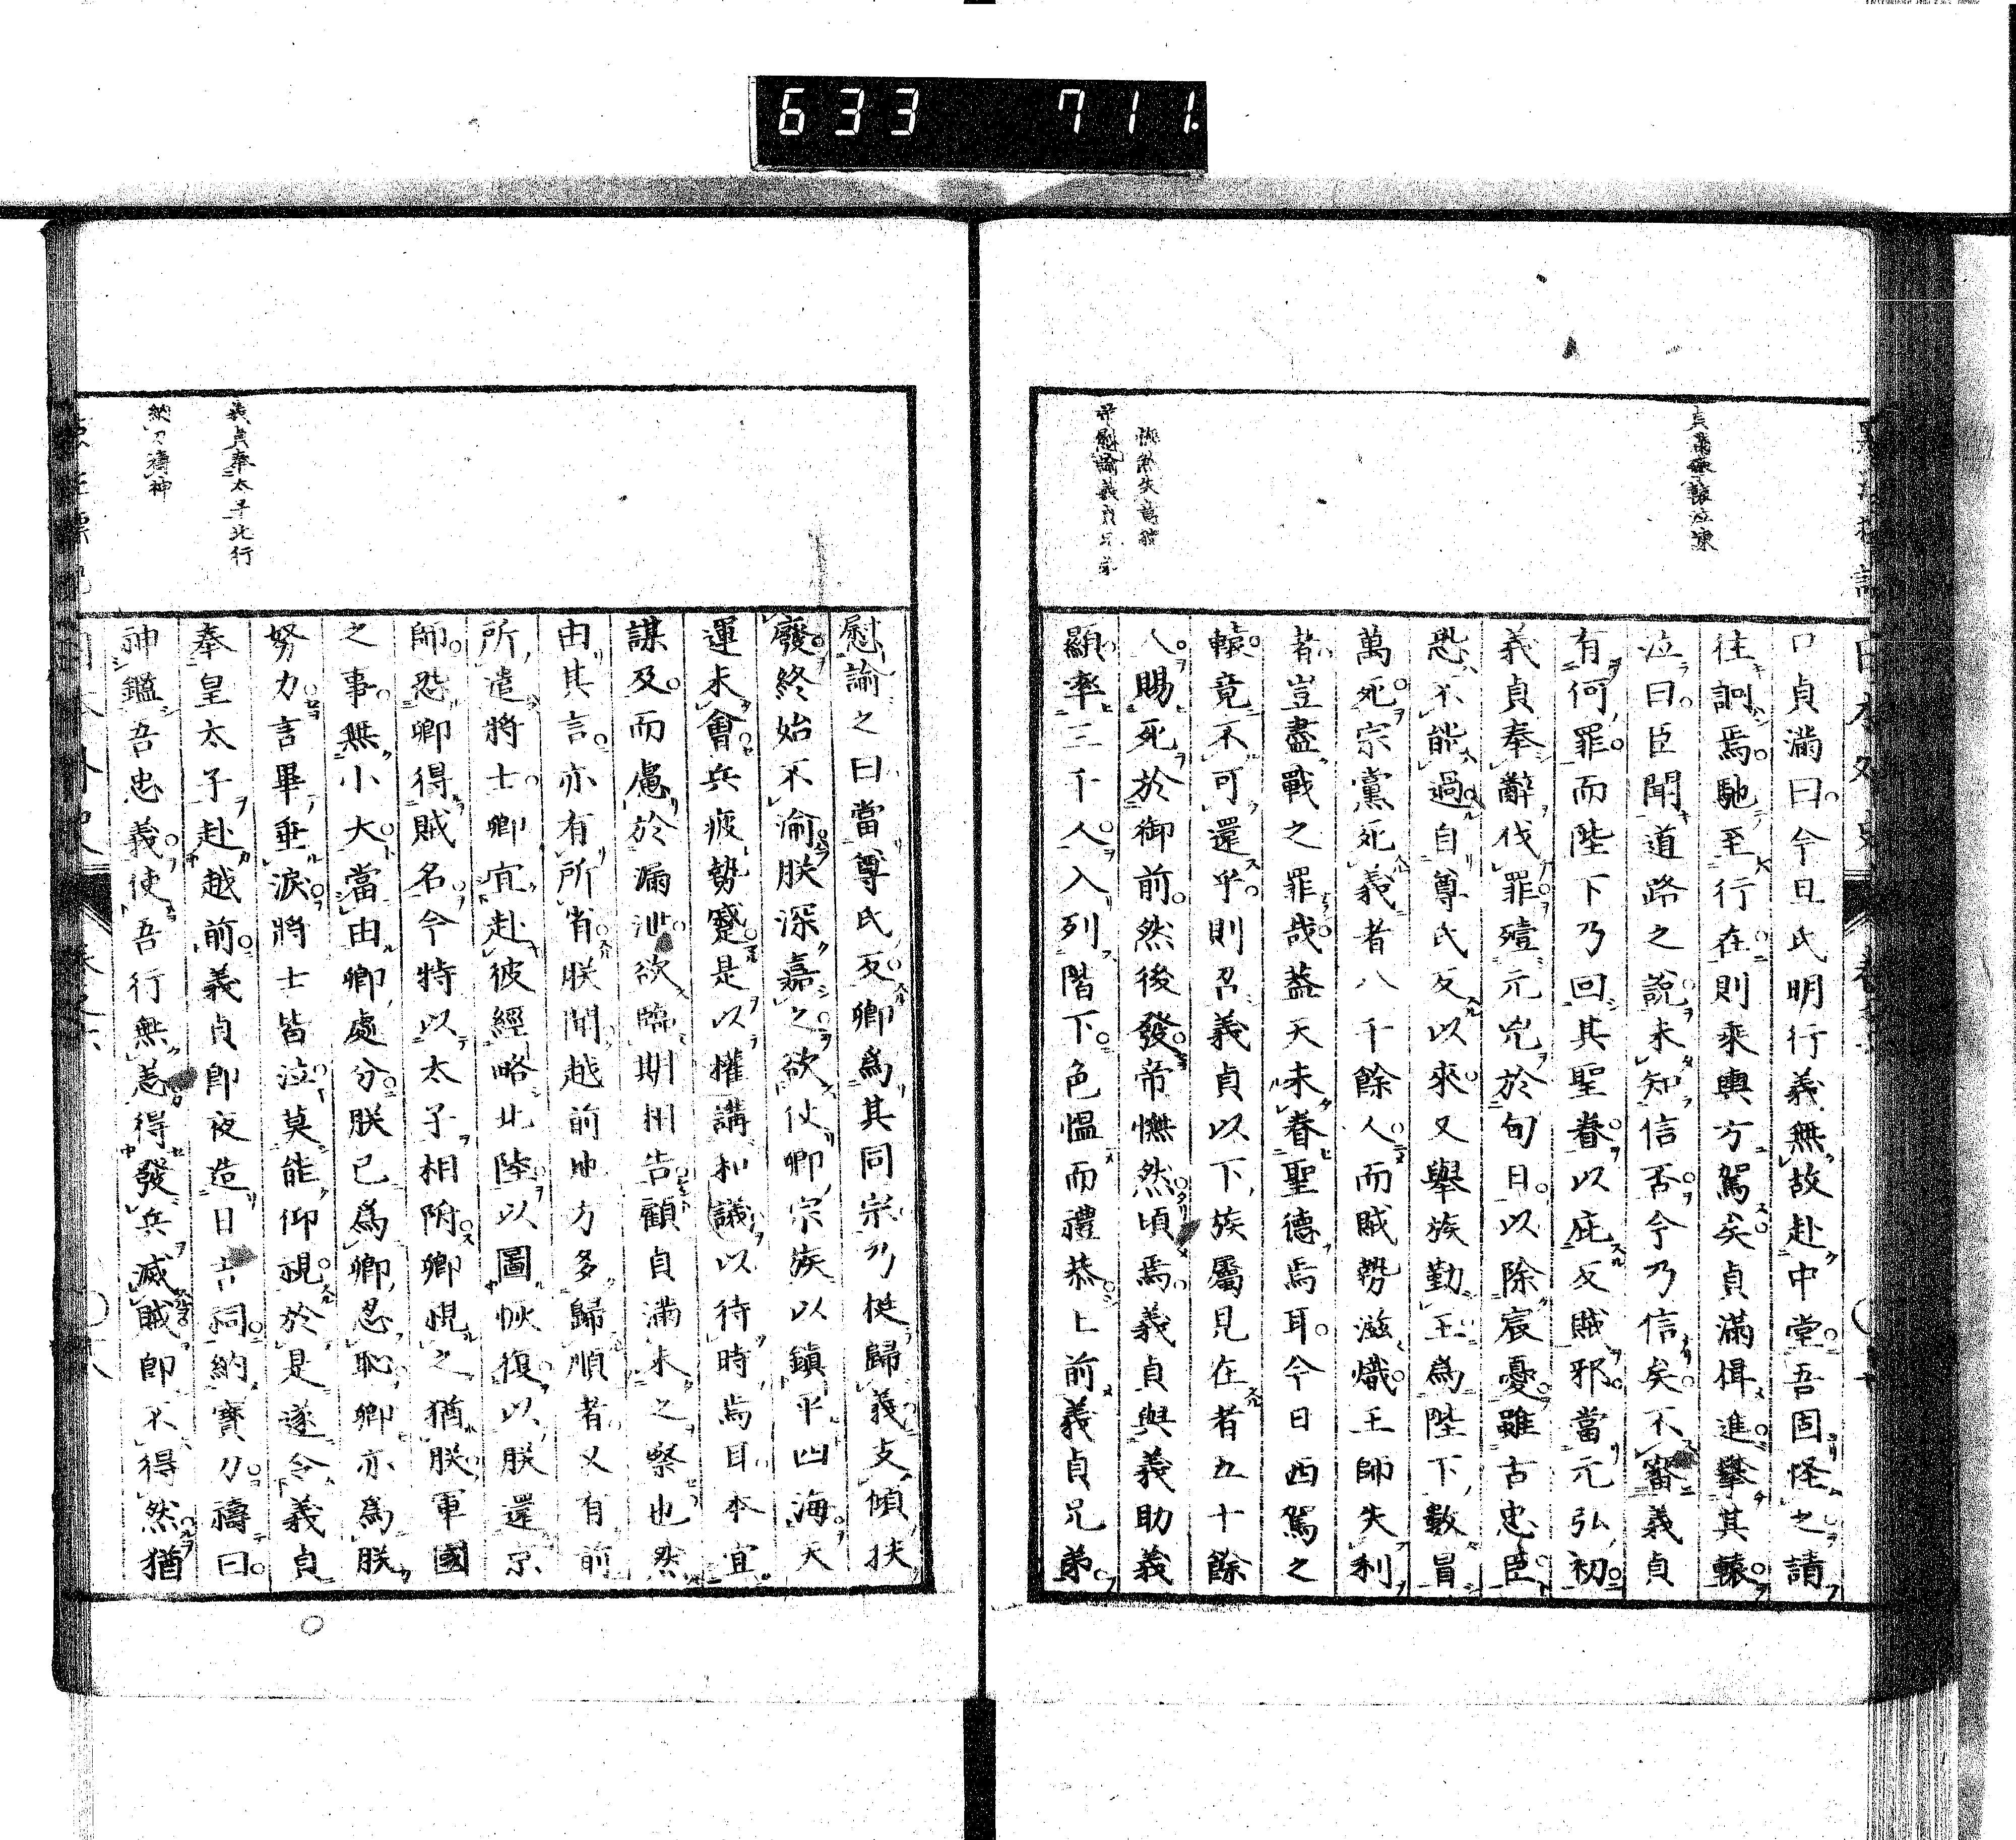 633 711.
貞滿攀轅泣諫
憮然失萬乘
帝慰諭義貞兄弟
口貞滿曰今旦氏明行義無故赴中堂吾固怪之請
往詗焉馳至行在則乘輿方駕矣貞滿揖進攀其轅
泣曰臣聞道路之說未知信否今乃信矣不審義貞
有何罪而陛下乃回其聖眷以庇反賊邪當元弘初
義貞奉辭伐罪殪元兇於旬日以除宸憂雖古忠臣
恐不能過自尊氏反以來又舉族勤王爲陛下數冒
萬死宗黨死義者八千餘人而賊勢滋熾王師失利
者豈盡戰之罪哉蓋天未眷聖德焉耳今日西駕之
轅竟不可還乎則召義貞以下族屬見在者五十餘
人賜死於御前然後發帝憮然頃焉義貞與義助義
顯率三千人入列階下色慍而禮恭上前義貞兄弟
義貞奉太子北行
納刀禱神
慰諭之曰當尊氏反卿爲其同宗乃挺歸義支傾扶
廢終始不渝朕深嘉之欲仗卿宗族以鎮平四海天
運未會兵疲勢蹙是以權講和議以待時焉耳本宜
謀及而慮於漏泄欲臨期相告顧貞滿未之察也然
由其言亦有所省朕聞越前地方多歸順者又有前
所遣將士卿宜赴彼經略北陸以圖恢復以朕還京
師恐卿得賊名今特以太子相附卿視之猶朕軍國
之事無小大當由卿處分朕已爲卿忍恥卿亦爲朕
努力言畢垂淚將士皆泣莫能仰視於是遂令義貞
奉皇太子赴越前義貞即夜造日吉祠納寶刀禱曰
神鑑吾忠義使吾行無恙得發兵滅賊即不得然猶